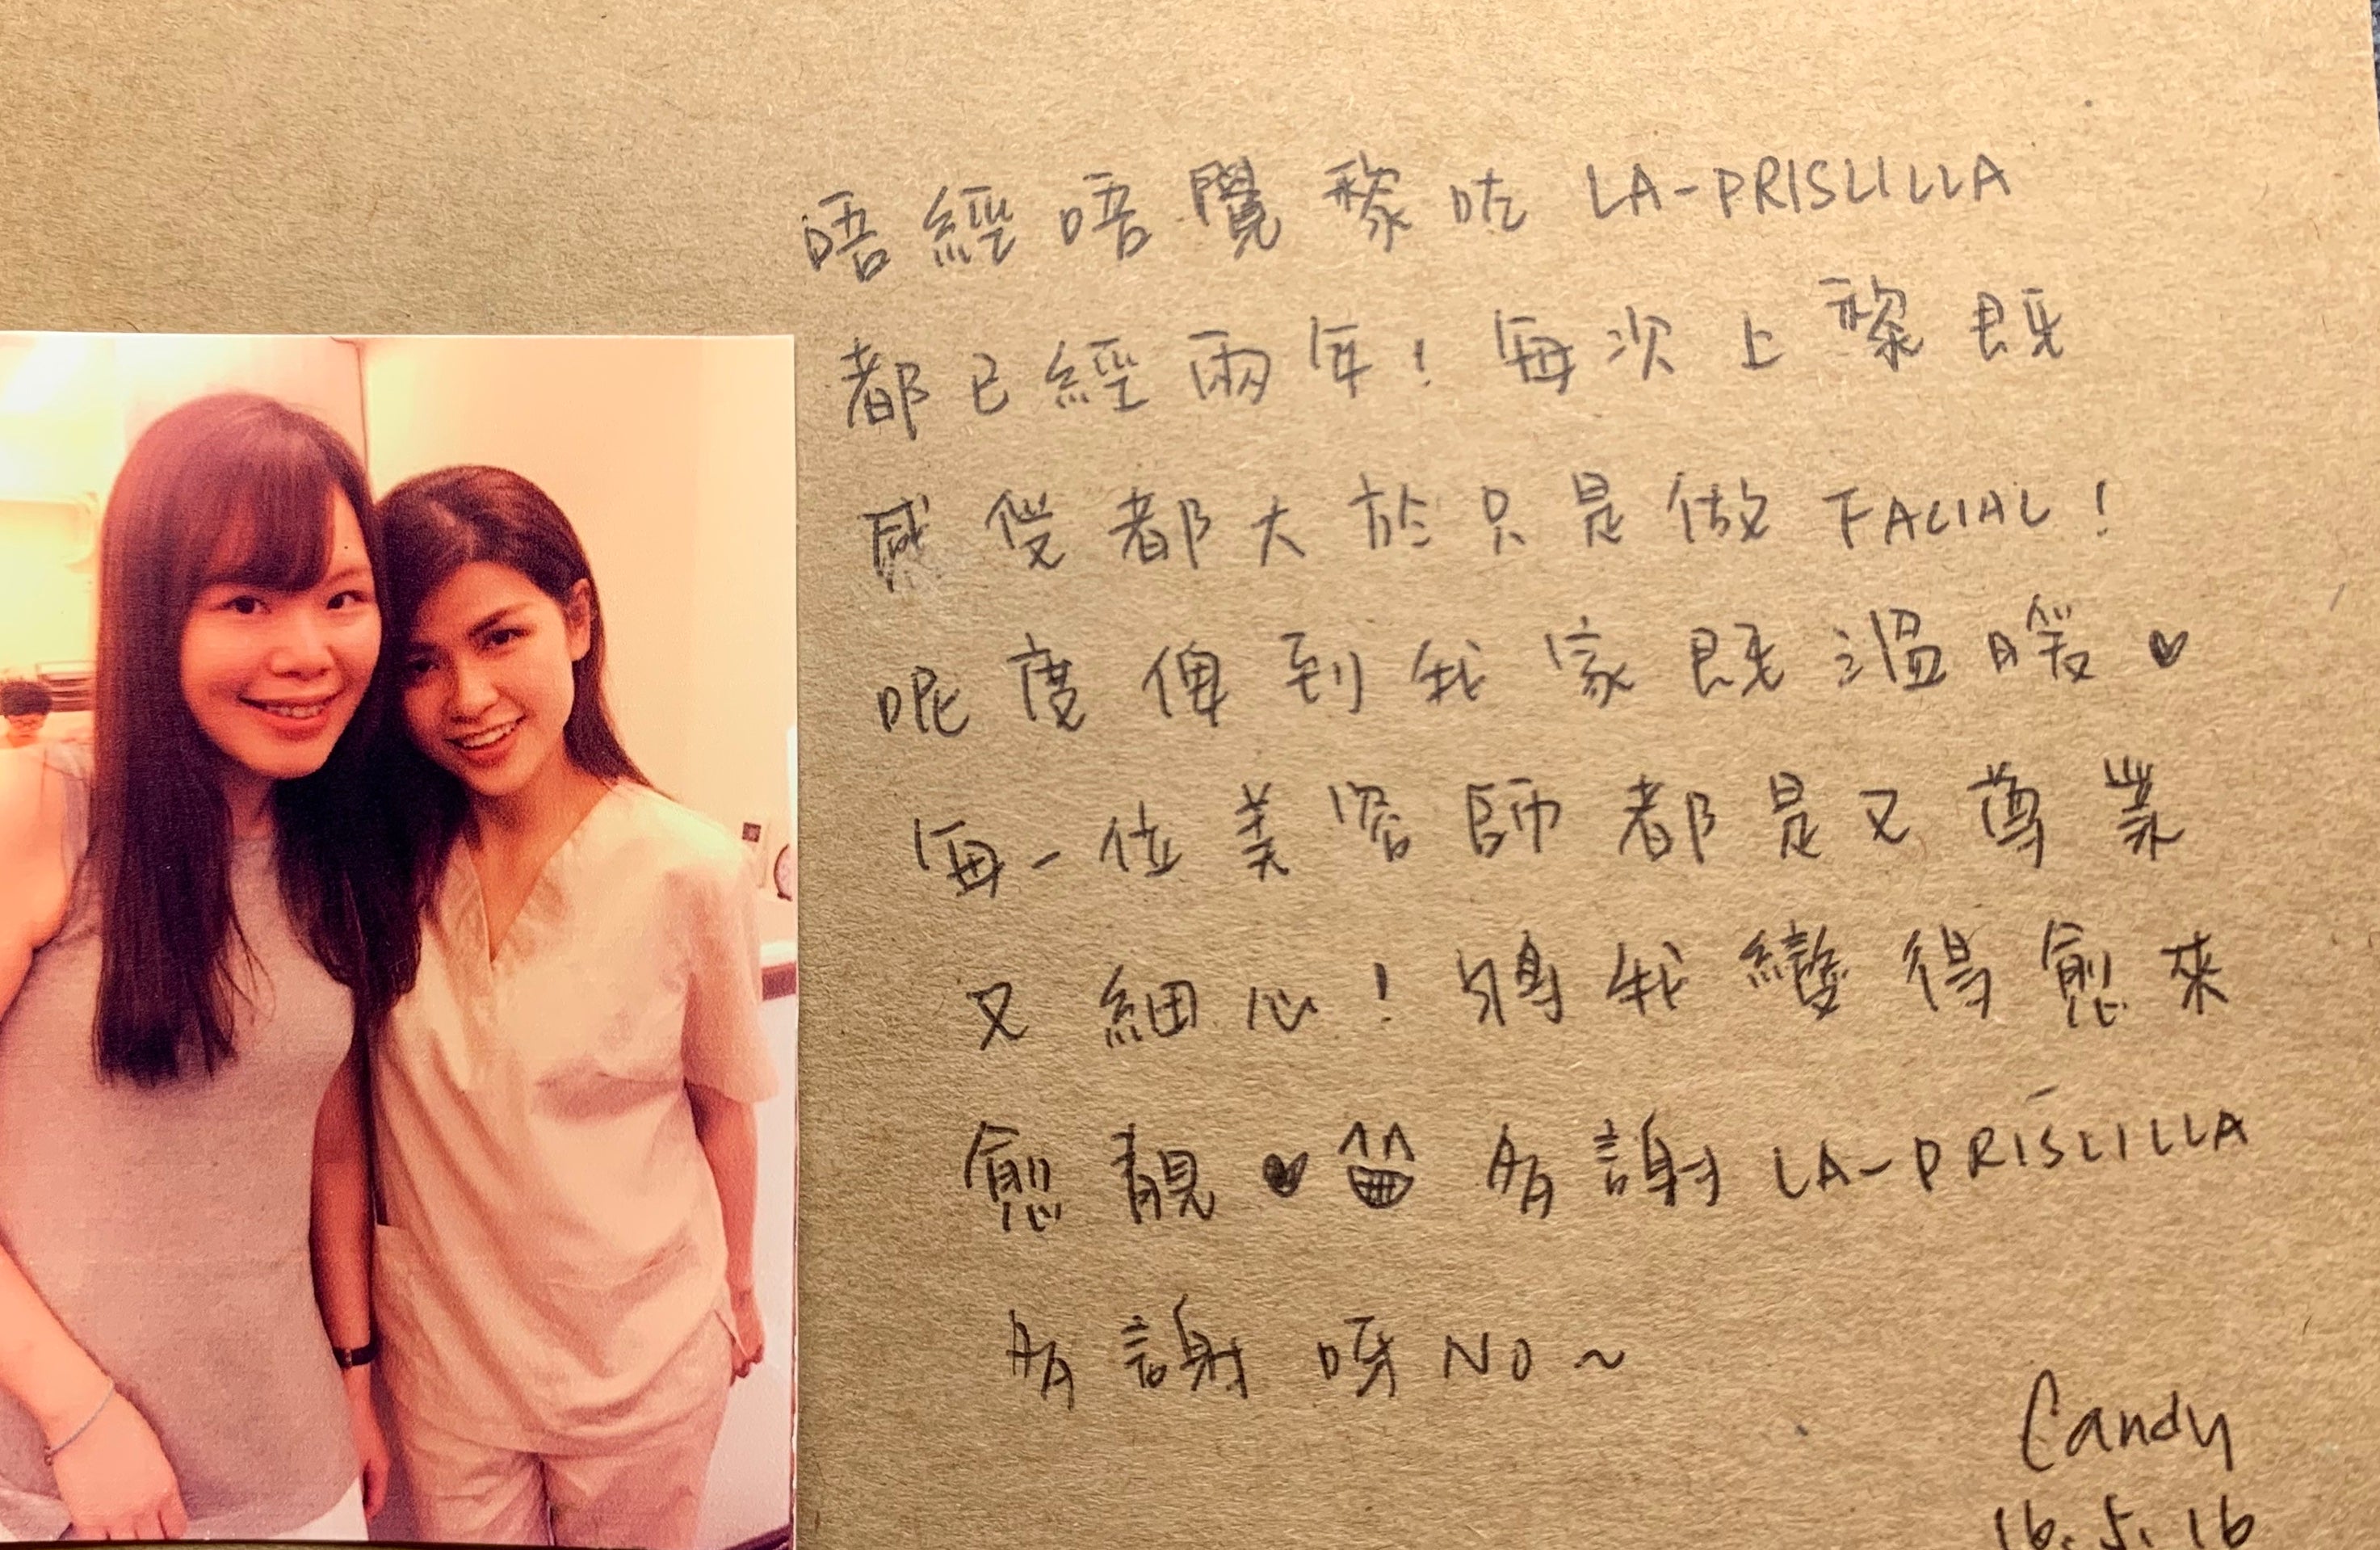 唔經唔覺黎咗 LA-PRISCILLA
都已經兩年！每次上黎既
感受都大於只是做 FACIAL！
呢度俾到我家既溫暖♥
每一位美容師都是又專業
又細心！將我變得愈來
愈靚♥ 多謝 LA-PRISCILLA
多謝呀 NO~
Candy
16.5.16